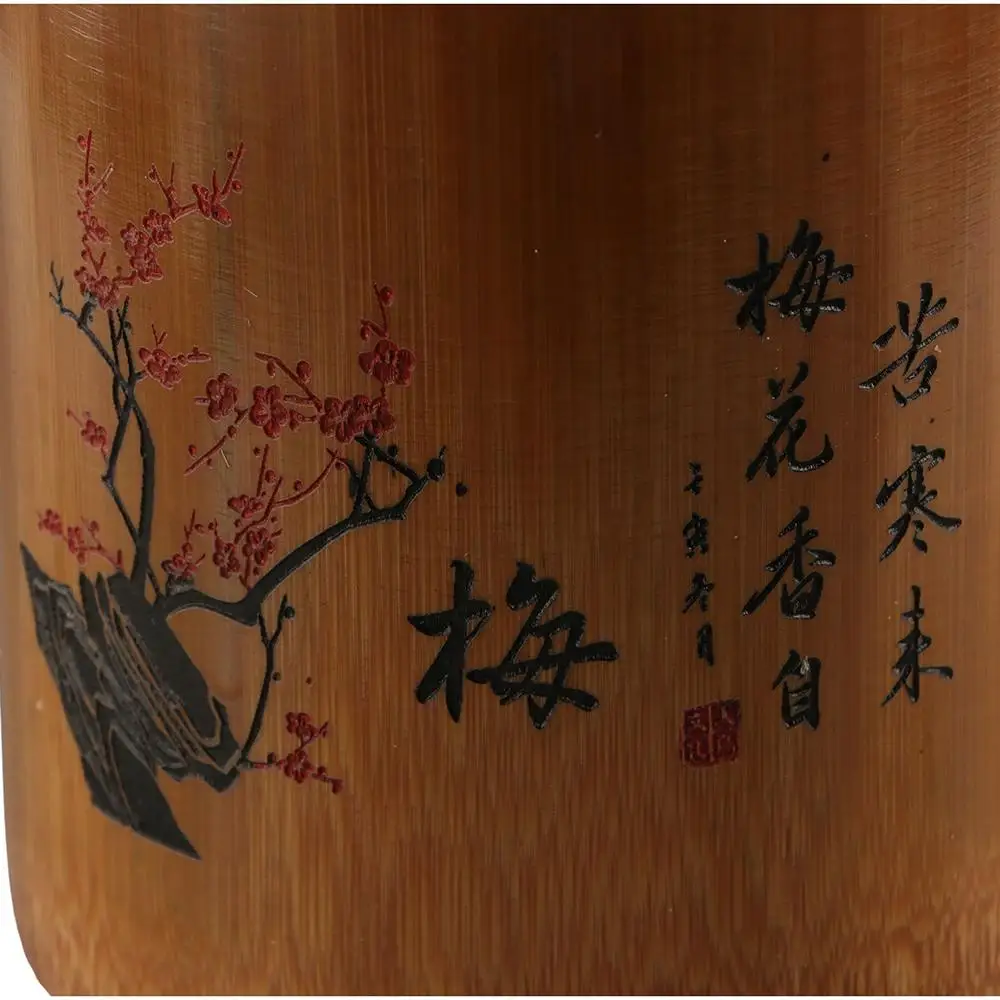 梅花香自
苦寒来
壬寅冬月
梅